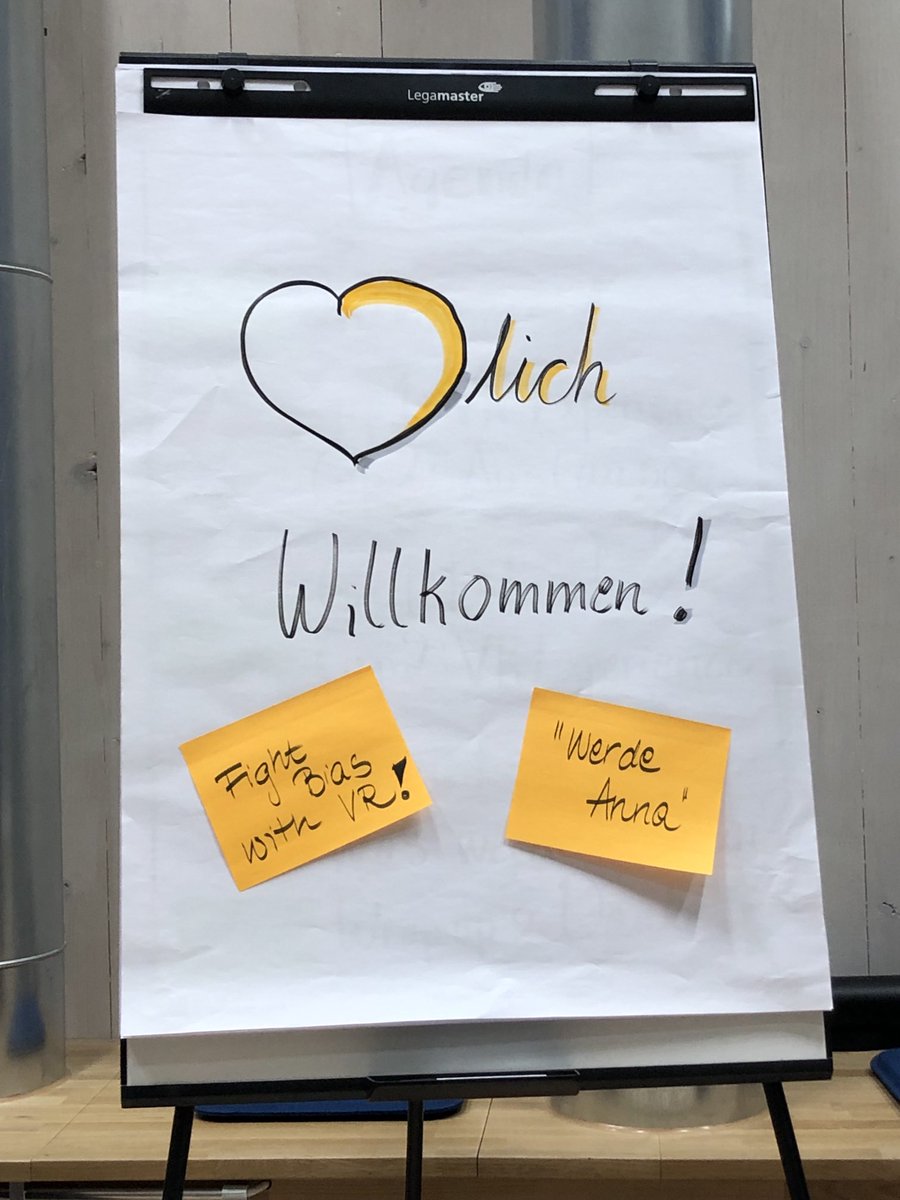 Legamaster
lich
Willkommen!
Fight
Bias
with VR!
"Werde
Anna"
Agenda